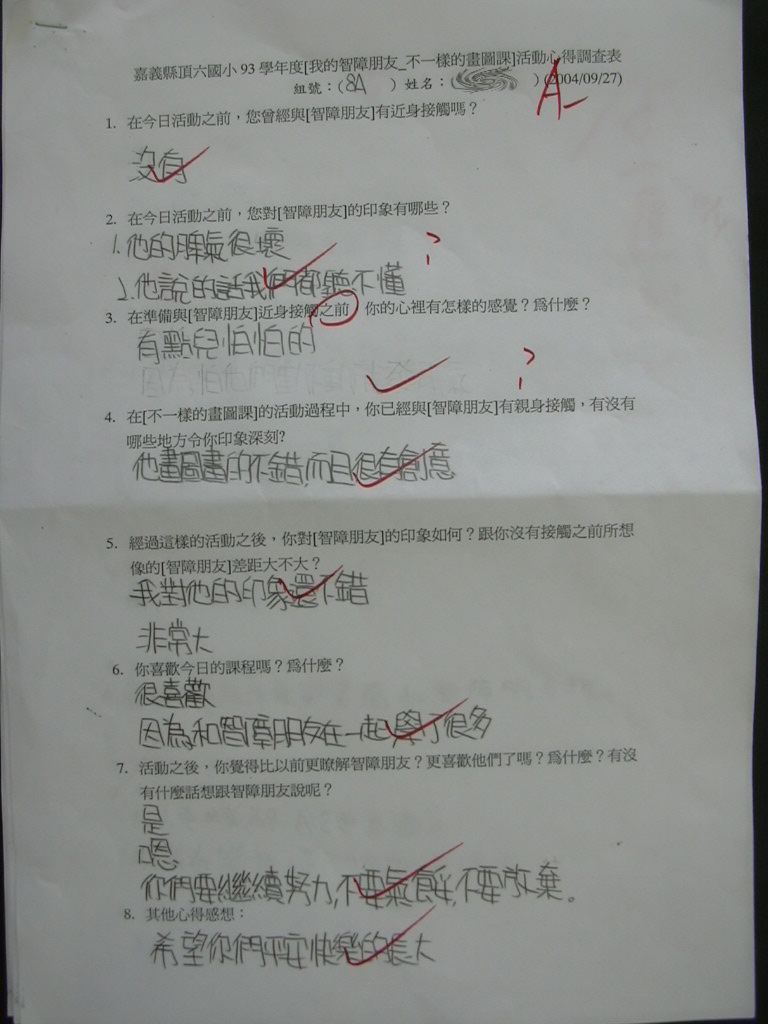 嘉義縣頂六國小 93 學年度[我的智障朋友_不一樣的畫圖課]活動心得調查表
組號：(8A ) 姓名：( ) (2004/09/27)
A-
1. 在今日活動之前，您曾經與[智障朋友]有近身接觸嗎？
沒有
2. 在今日活動之前，您對[智障朋友]的印象有哪些？
1.他的脾氣很壞 ?
2.他說的話我們都聽不懂
3. 在準備與[智障朋友]近身接觸之前，你的心裡有怎樣的感覺？爲什麼？
有點兒怕怕的
?
4. 在[不一樣的畫圖課]的活動過程中，你已經與[智障朋友]有親身接觸，有沒有
哪些地方令你印象深刻?
他畫圖畫的不錯,而且很有創意
5. 經過這樣的活動之後，你對[智障朋友]的印象如何？跟你沒有接觸之前所想
像的[智障朋友]差距大不大？
我對他的印象還不錯
非常大
6. 你喜歡今日的課程嗎？爲什麼？
很喜歡
因為和智障朋友在一起學了很多
7. 活動之後，你覺得比以前更瞭解智障朋友？更喜歡他們了嗎？爲什麼？有沒
有什麼話想跟智障朋友說呢？
是
嗯
你們要繼續努力,不要氣餒,不要放棄。
8. 其他心得感想：
希望你們平安快樂的長大